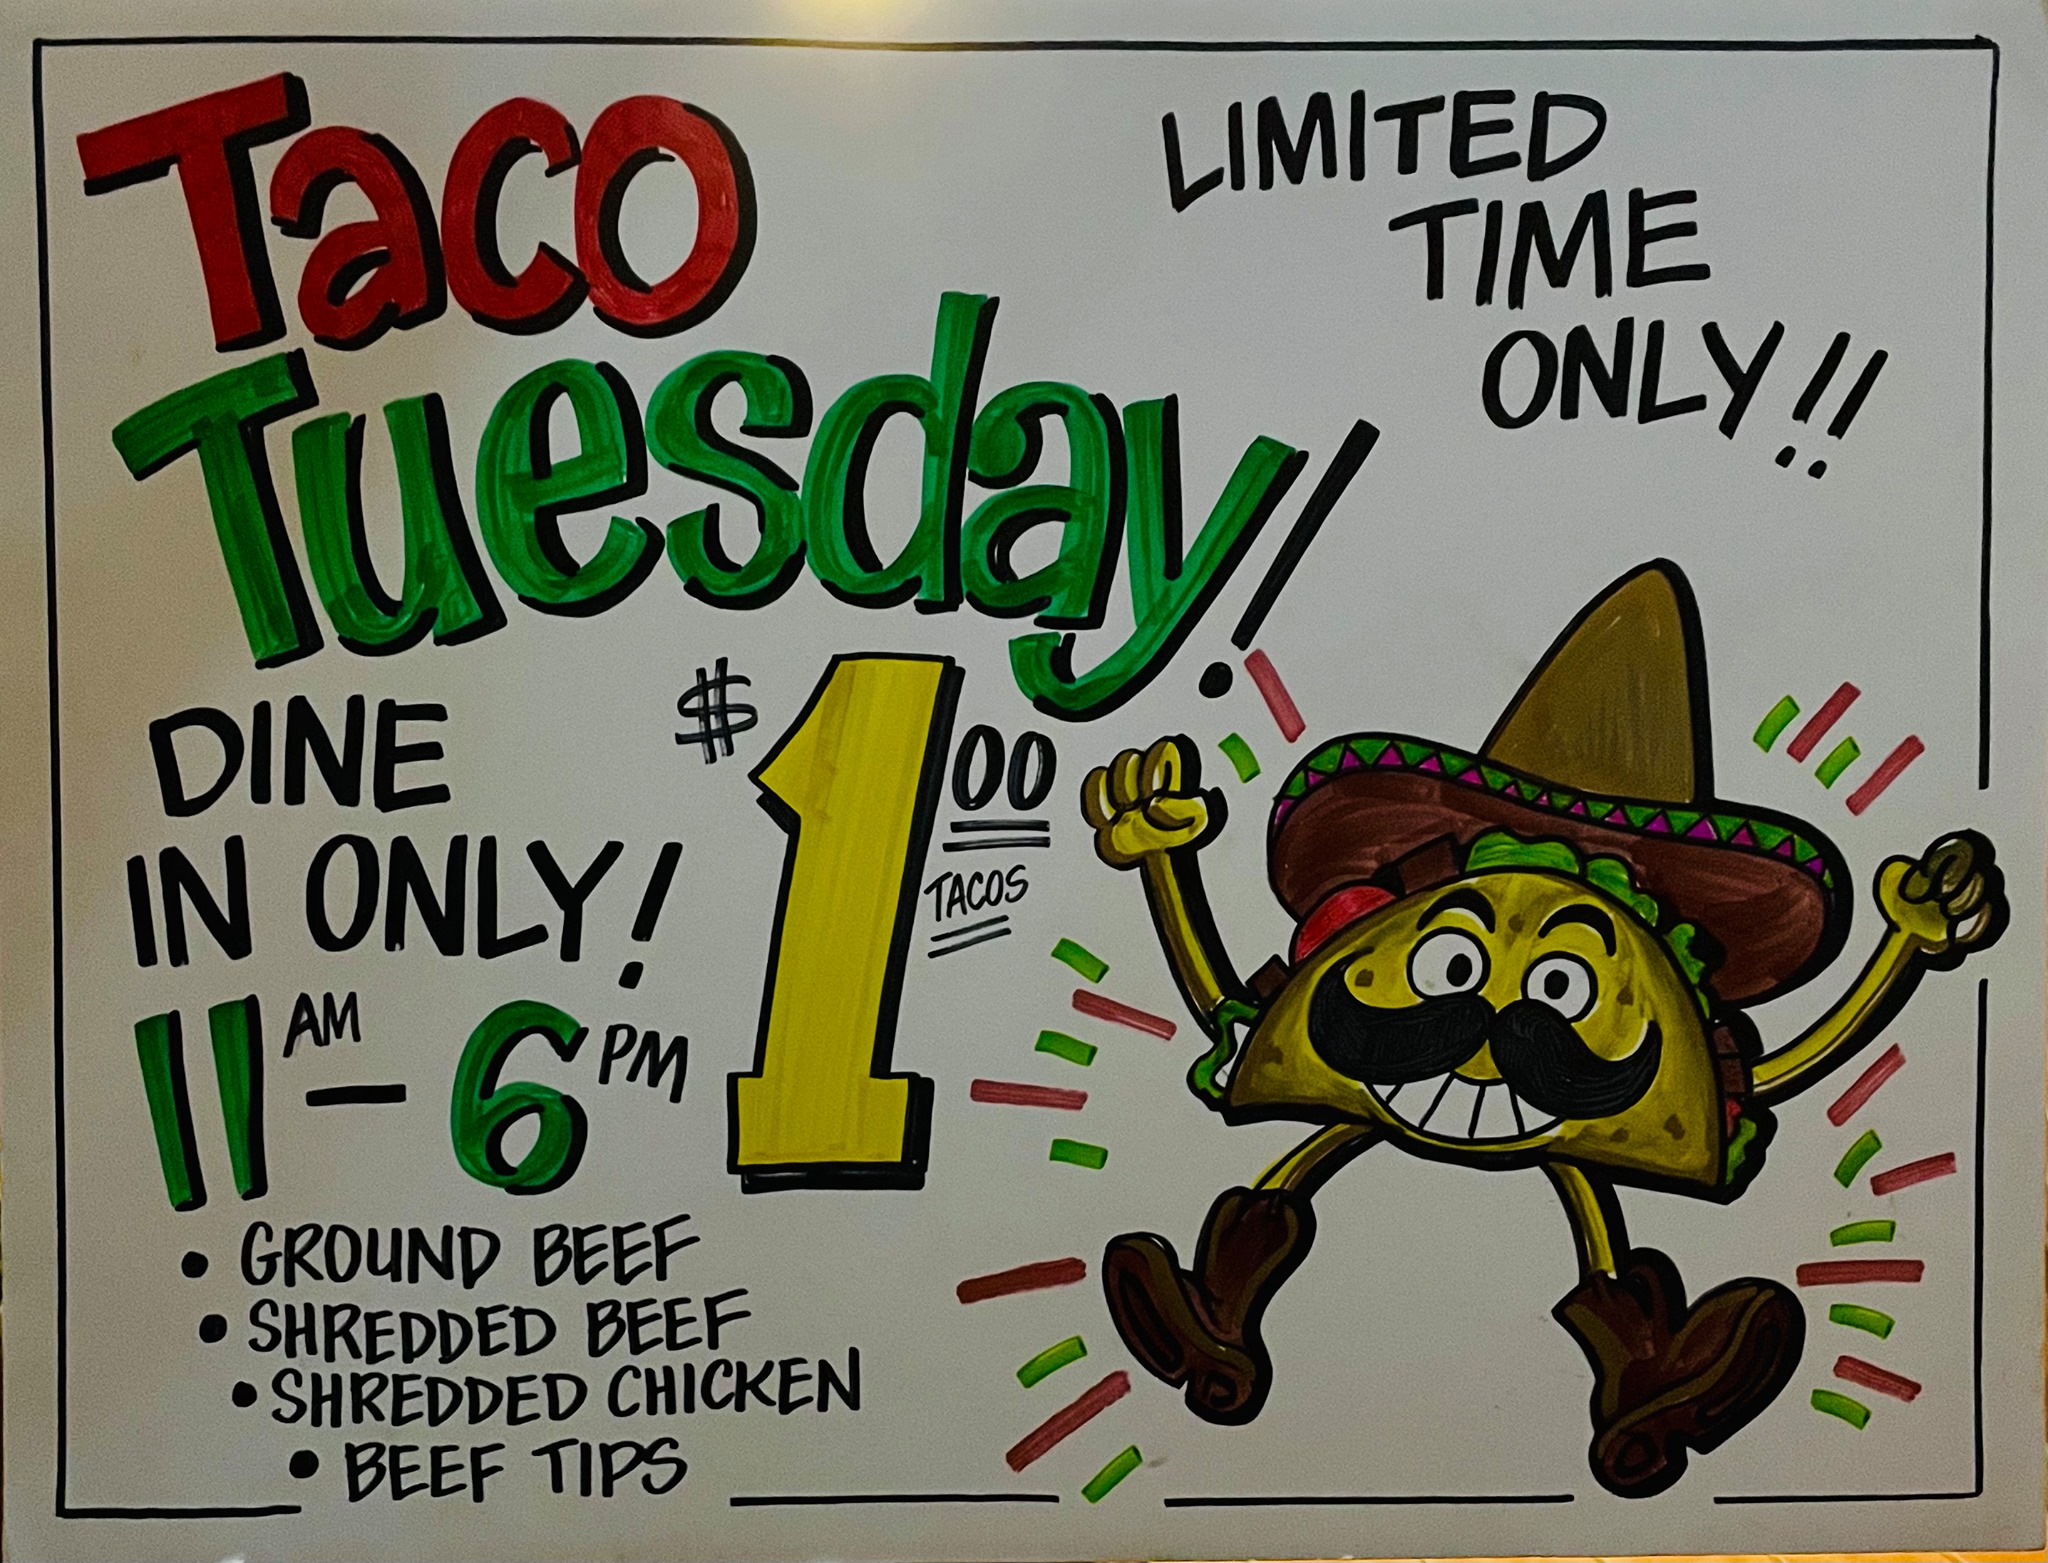 Taco
Tuesday!
LIMITED
TIME
ONLY!!
DINE
IN ONLY!
11 AM - 6 PM
$1 00
TACOS
• GROUND BEEF
• SHREDDED BEEF
• SHREDDED CHICKEN
• BEEF TIPS